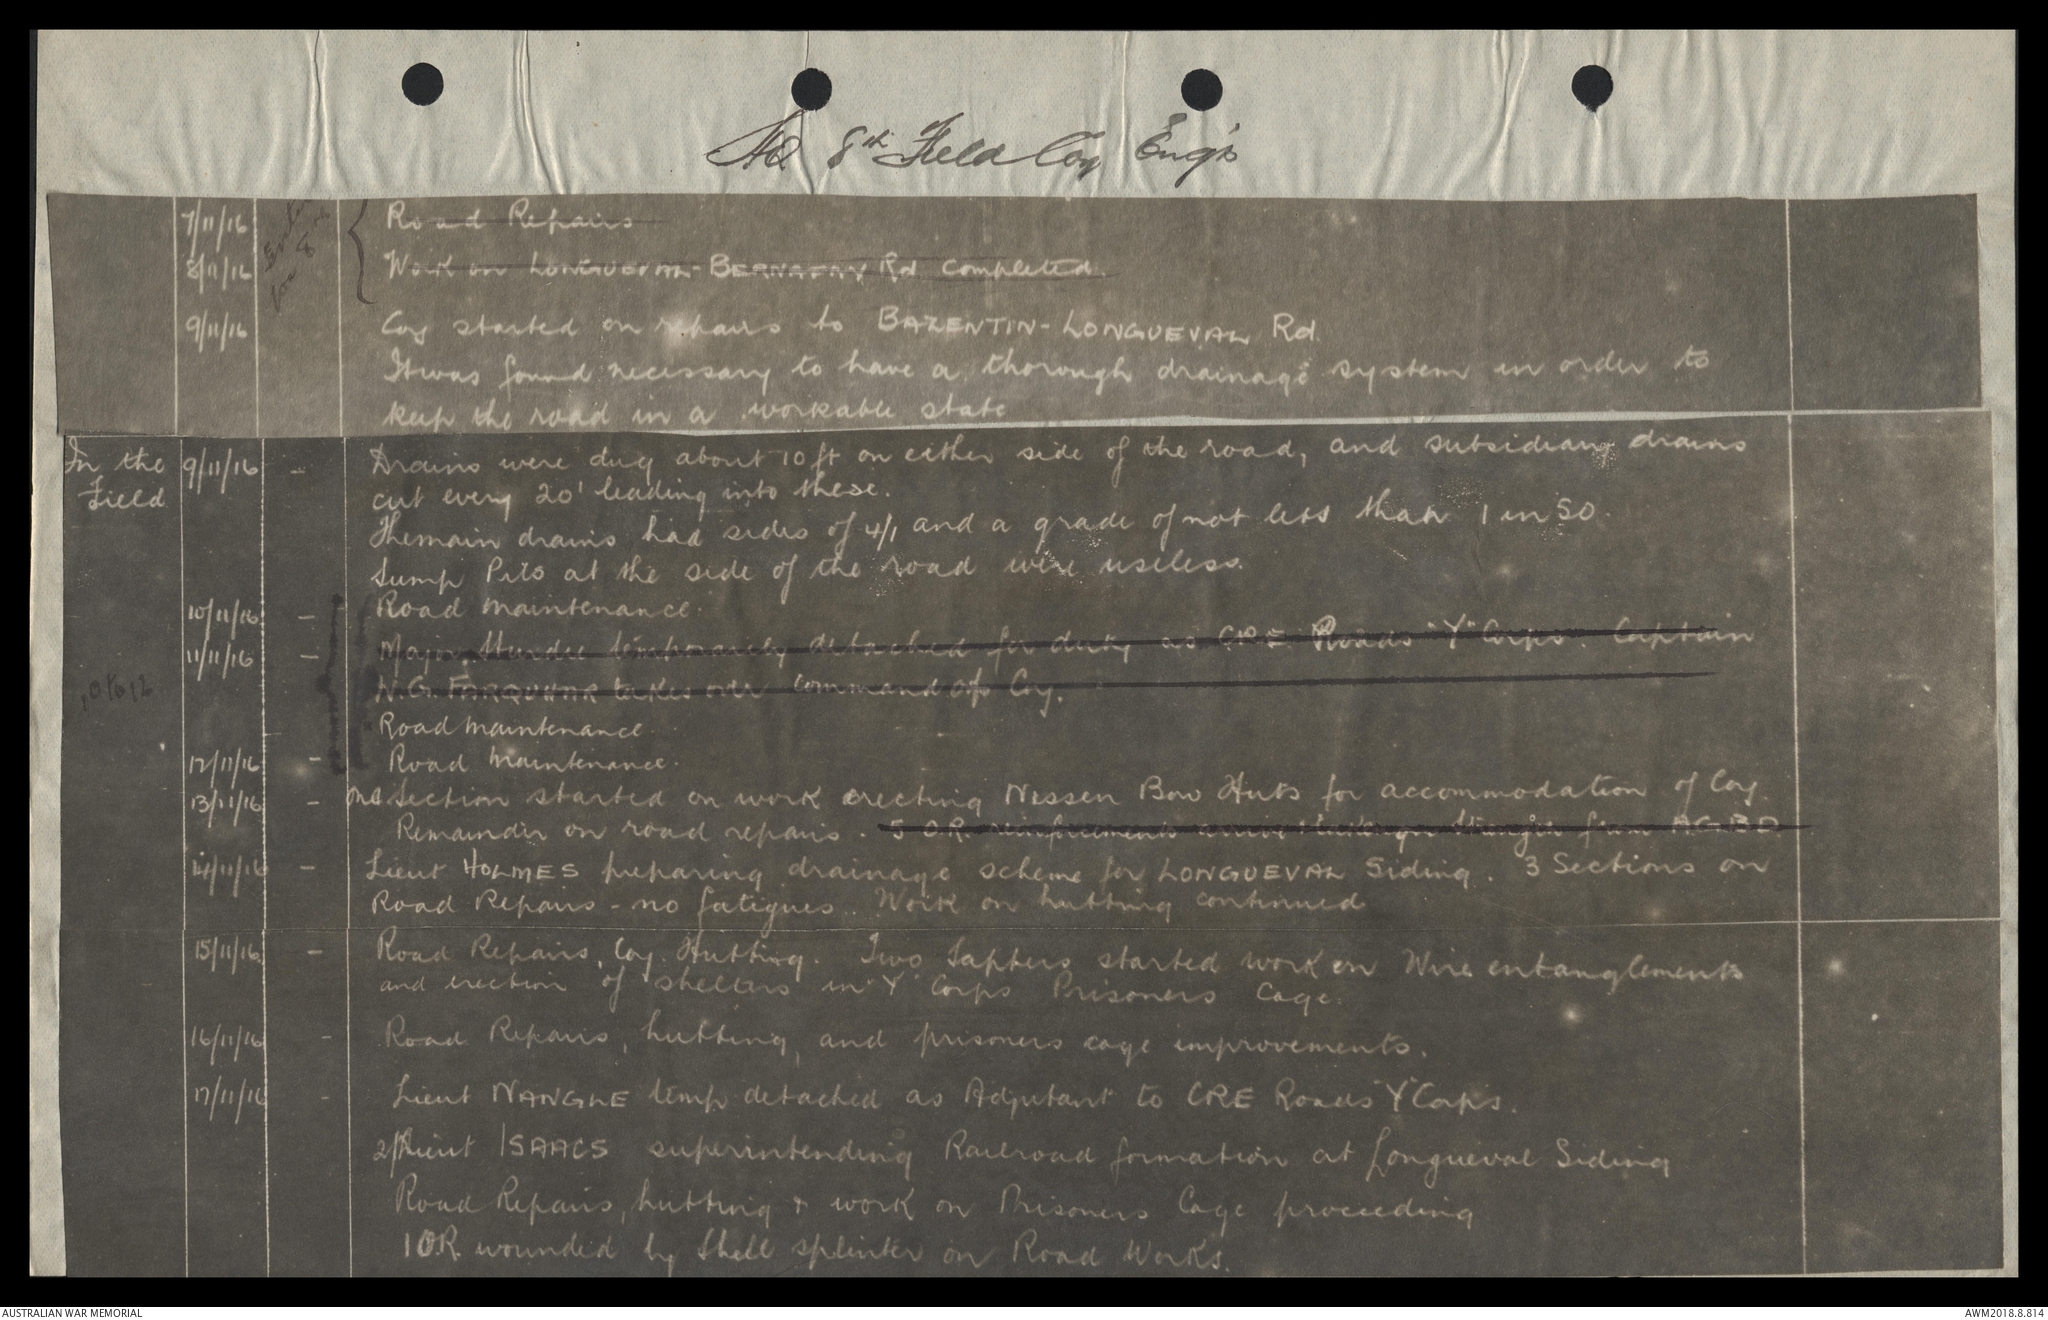 HQ 8th Field Coy Eng's
7/11/16 Road Repairs
8/11/16 Work on LONGUEVAL-BERNAFAY Rd completed.
9/11/16 Coy started on repairs to BAZENTIN-LONGUEVAL Rd.
It was found necessary to have a thorough drainage system in order to
keep the road in a workable state
In the Field 9/11/16 - Drains were dug about 10 ft on either side of the road, and subsidiary drains
cut every 20' leading into these.
The main drains had sides of 4/1 and a grade of not less than 1 in 50.
Sump Pits at the side of the road were useless.
10/11/16 - Road maintenance.
11/11/16 - Major temporarily detached for duty as CRE Roads "Y" Corps. Captain
N.G. FARQUHAR takes over command of Coy.
10 to 12
Road maintenance.
12/11/16 - Road maintenance.
13/11/16 - One Section started on work erecting Nissen Bow Huts for accommodation of Coy.
Remainder on road repairs. 5 OR reinforcements arrive from AGBD
14/11/16 - Lieut HOLMES preparing drainage scheme for LONGUEVAL Siding. 3 Sections on
Road Repairs - no fatigues. Work on hutting continued
15/11/16 - Road Repairs, Coy Hutting. Two Sappers started work on Wire entanglements
and erection of shelters in "Y" Corps Prisoners Cage.
16/11/16 - Road Repairs, hutting, and prisoners cage improvements.
17/11/16 - Lieut NANGLE temp detached as Adjutant to CRE Roads "Y" Corps.
2/Lieut ISAACS superintending Railroad formation at Longueval Siding
Road Repairs, hutting & work on Prisoners Cage proceeding
1 OR wounded by Shell splinter on Road Works.
AUSTRALIAN WAR MEMORIAL
AWM2018.8.814